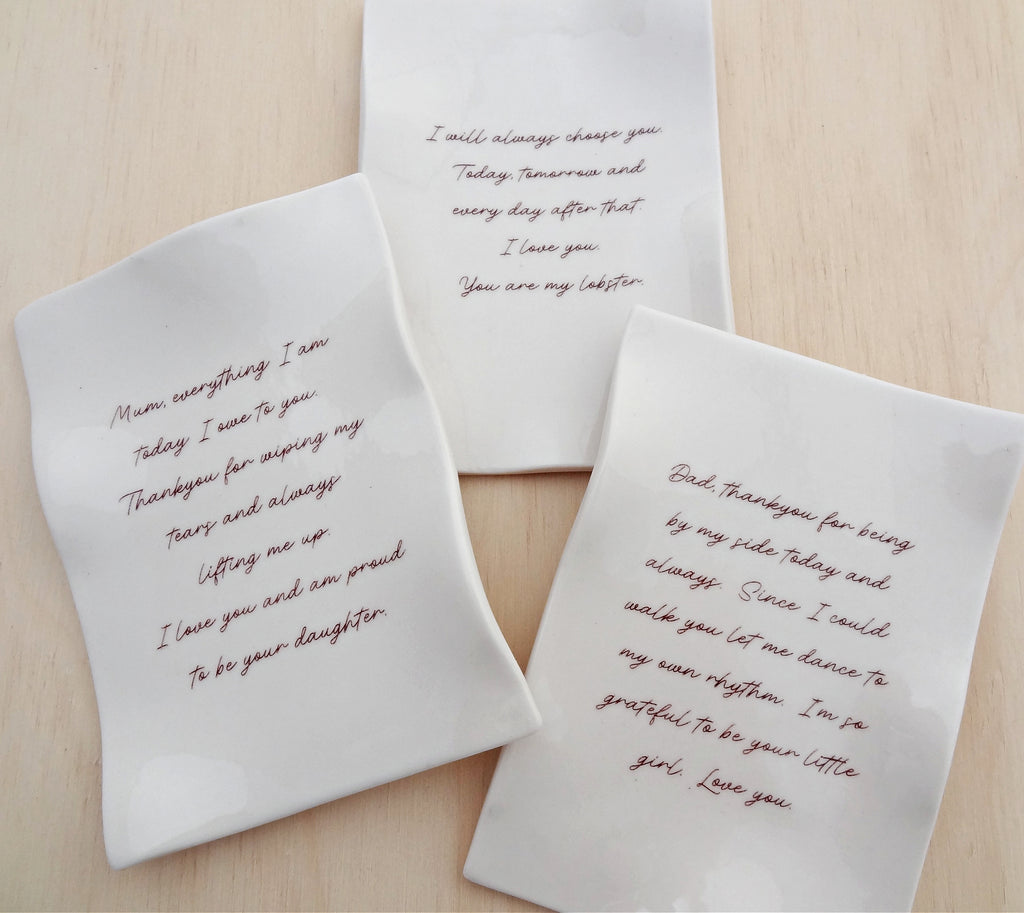 I will always choose you.
Today, tomorrow and
every day after that.
I love you.
You are my lobster.
Mum, everything I am
today I owe to you.
Thankyou for wiping my
tears and always
lifting me up.
I love you and am proud
to be your daughter.
Dad, thankyou for being
by my side today and
always. Since I could
walk you let me dance to
my own rhythm. I'm so
grateful to be your little
girl. Love you.